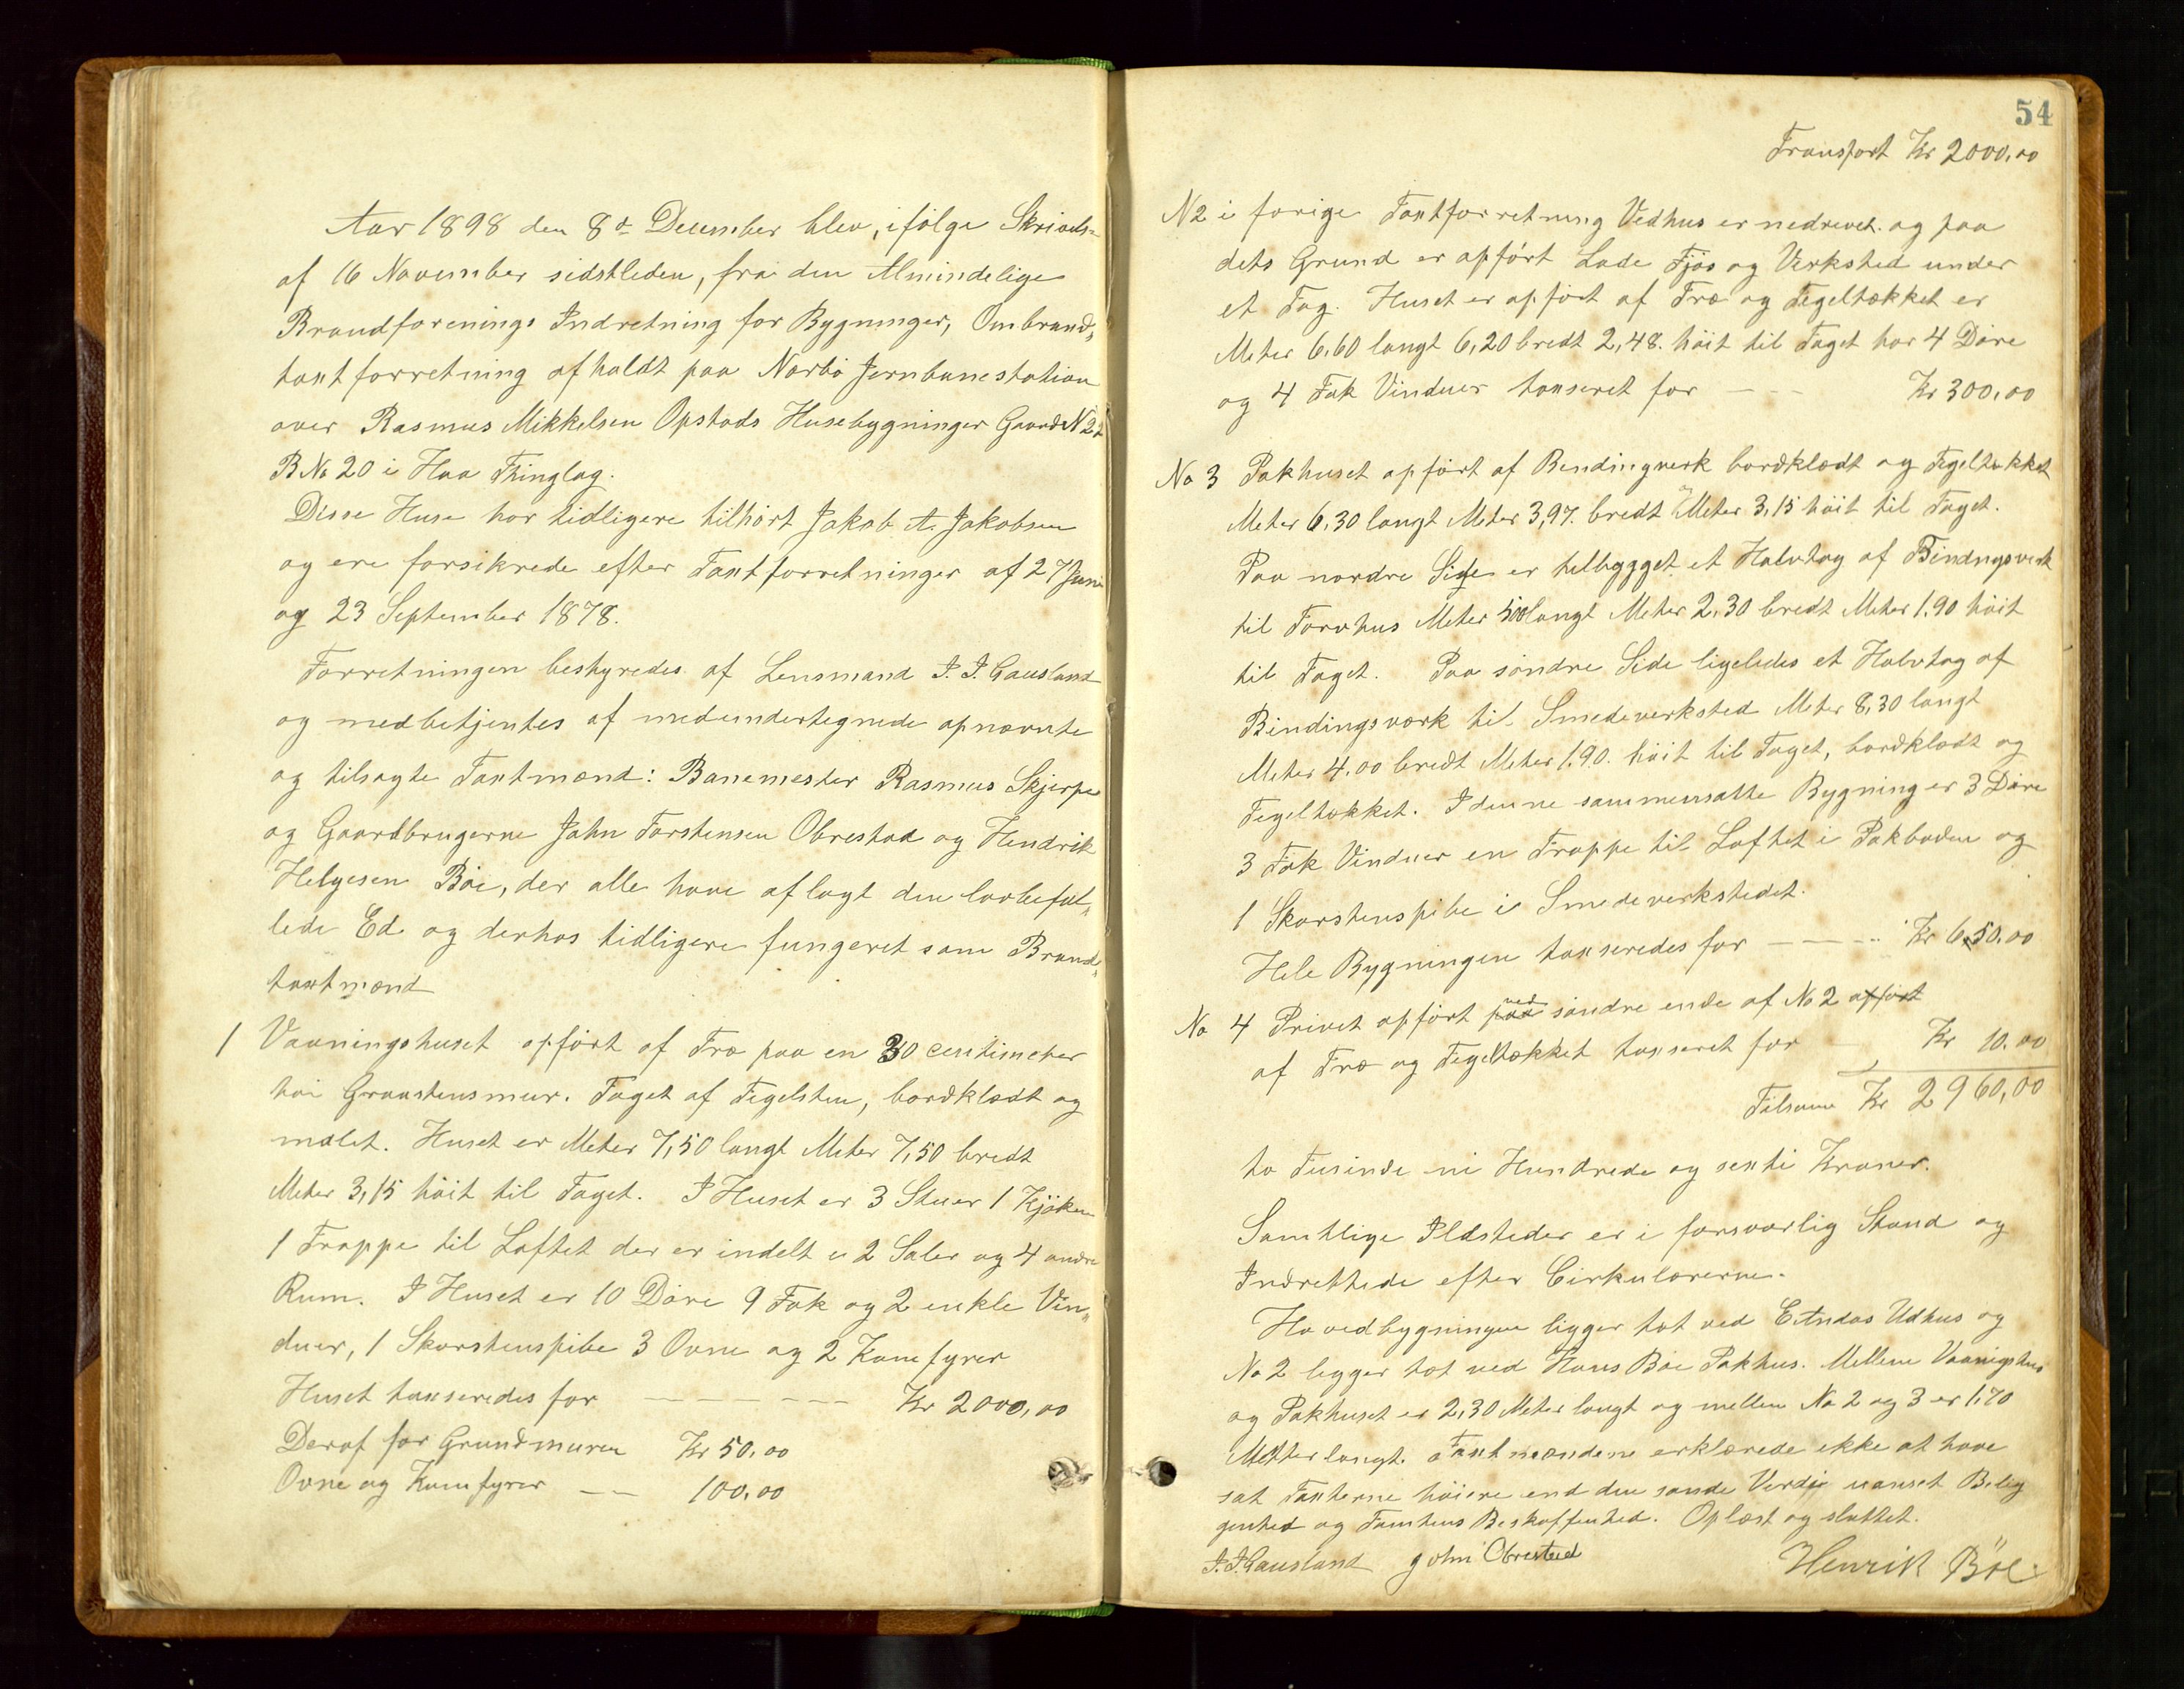 Aar 1898 den 8de December blev, ifølge Skrivels-
af 16 November sidstleden, fra den Almindelige
Brandforenings Indretning for Bygninger, Ombrand„
taxtforretning afholdt paa Nærbø Jernbanestation
over Rasmus Mikkelsen Opstads Husebygninger Gaards N 22
B No 20 i Haa Thinglag.
Disse Huse har tidligere tilhørt Jakob A. Jakobsen
og ere forsikrede efter Taxtforretninger af 27 Juni
og 23 September 1878.
Forretningen bestyredes af Lensmand I. I. Gausland
og medbetjentes af medundertegnede opnævnte
og tilsagte Taxtmænd: Banemester Rasmus Skjerpe
og Gaardbrugerne John Torstensen Obrestad og Hendrik
Helgesen Bøe, der alle have aflagt den lovbefal„
lede Ed og derhos tidligere fungeret som Brand„
taxtmænd
1 Vaaningshuset opført af Træ paa en 30 centimeter
høi Graastensmur. Taget af Tegelsten, bordklædt og
malet. Huset er Meter 7,50 langt Meter 7,50 bredt
Meter 3,15 høit til Taget. I Huset er 3 Stuer 1 Kjøken
1 Trappe til Loftet der er indelt i 2 Saler og 4 andre
Rum. I Huset er 10 Døre 9 Fak og 2 enkle Vin„
duer, 1 Skorstenspibe 3 Ovne og 2 Komfyrer
Huset taxseredes for — — — — — Kr 2000,00
Deraf for Grundmuren Kr 50,00
Ovne og Komfyrer — — 100,00
54
Transport Kr 2000,00
N2 i forige Taxtforretning Vedhus er nedrevet og paa
dets Grund er opført Lade Fjøs og Verksted under
et Tag. Huset er opført af Træ og Tegeltækket er
Meter 6,60 langt 6,20 bredt 2,48. høit til Taget har 4 Døre
og 4 Fak Vinduer taxseret for — — Kr 300,00
No 3 Pakhuset opført af Bendingverk bordklædt og Tegeltækket
Meter 6,30 langt Meter 3,97. bredt og Meter 3,15 høit til Taget.
Paa nordre Side er tilbygget et Halvtag af Bindingsverk
til Torvhus Meter 5,00 langt Meter 2,30 bredt Meter 1.90 høit
til Taget. Paa søndre Side ligeledes et Halvtag af
Bindingsværk til Smedeverksted Meter 8,30 langt
Meter 4,00 bredt Meter 1.90. høit til Taget, bordklædt og
Tegeltækket. I denne sammensatte Bygning er 3 Døre
3 Fak Vinduer en Trappe til Loftet i Pakboden og
1 Skorstenspibe i Smedeverkstedet.
Hele Bygningen taxseredes for — — — Kr 650.00
No 4 Privet opført paa ved søndre ende af No 2 opført
af Træ og Tegeltækket taxseret for Kr 10.00
Tilsam Kr 2960,00
to Tusinde ni Hundrede og sexti Kroner.
Samtlige Ildsteder er i forsvarlig Stand og
Indrettede efter Cirkulærerne.
Hovedbygningen ligger tæt ved E. Andas Udhus og
No 2 ligger tæt ved Hans Bøe Pakhus. Mellem Vaanigshus
og Pakhuset er 2,30 Meter langt og mellem No 2 og 3 er 1,70
Metter langt. Taxtmændene erklærede ikke at have
sat Taxterne høiere end den sande Verdie uanset Belig
genhed og Tomtens Beskaffenhed. Oplæst og sluttet.
I. I. Gausland John Obrestad Henrik Böe